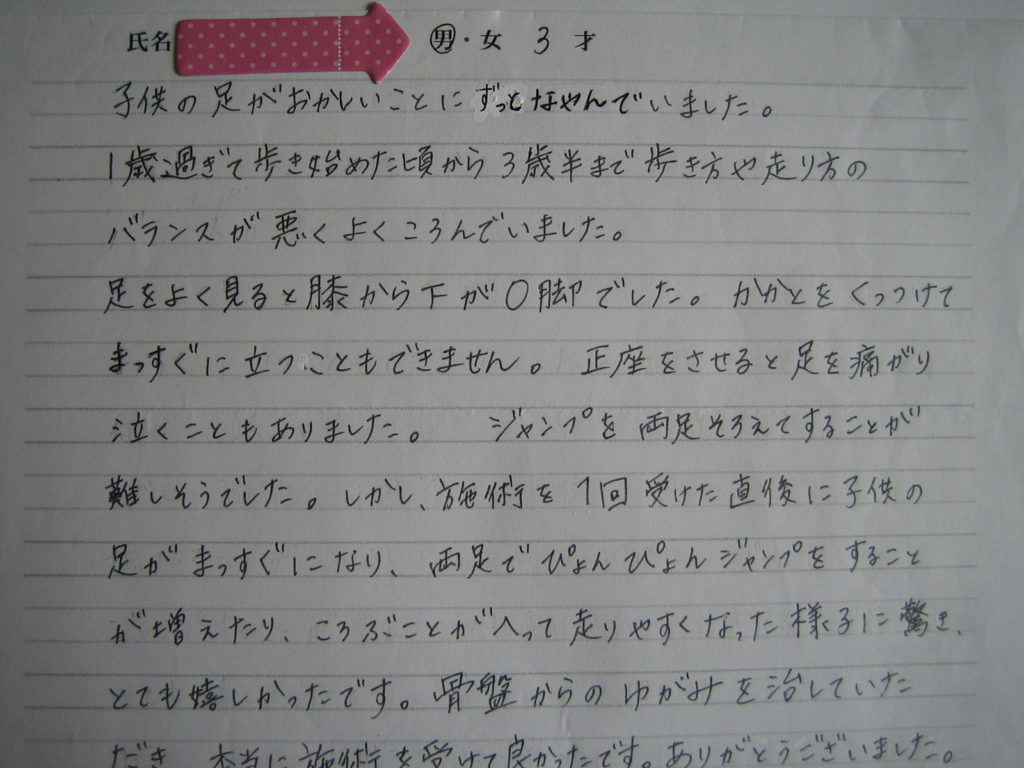 氏名 男・女 3 才
子供の足がおかしいことにずっとなやんでいました。
1歳過ぎて歩き始めた頃から3歳半まで歩き方や走り方の
バランスが悪くよくころんでいました。
足をよく見ると膝から下がO脚でした。かかとをくっつけて
まっすぐに立つこともできません。正座をさせると足を痛がり
泣くこともありました。 ジャンプを両足そろえてすることが
難しそうでした。しかし、施術を1回受けた直後に子供の
足がまっすぐになり、両足でぴょんぴょんジャンプをすること
が増えたり、ころぶことがへって走りやすくなった様子に驚き、
とても嬉しかったです。骨盤からのゆがみを治していた
だき、本当に施術を受けて良かったです。ありがとうございました。